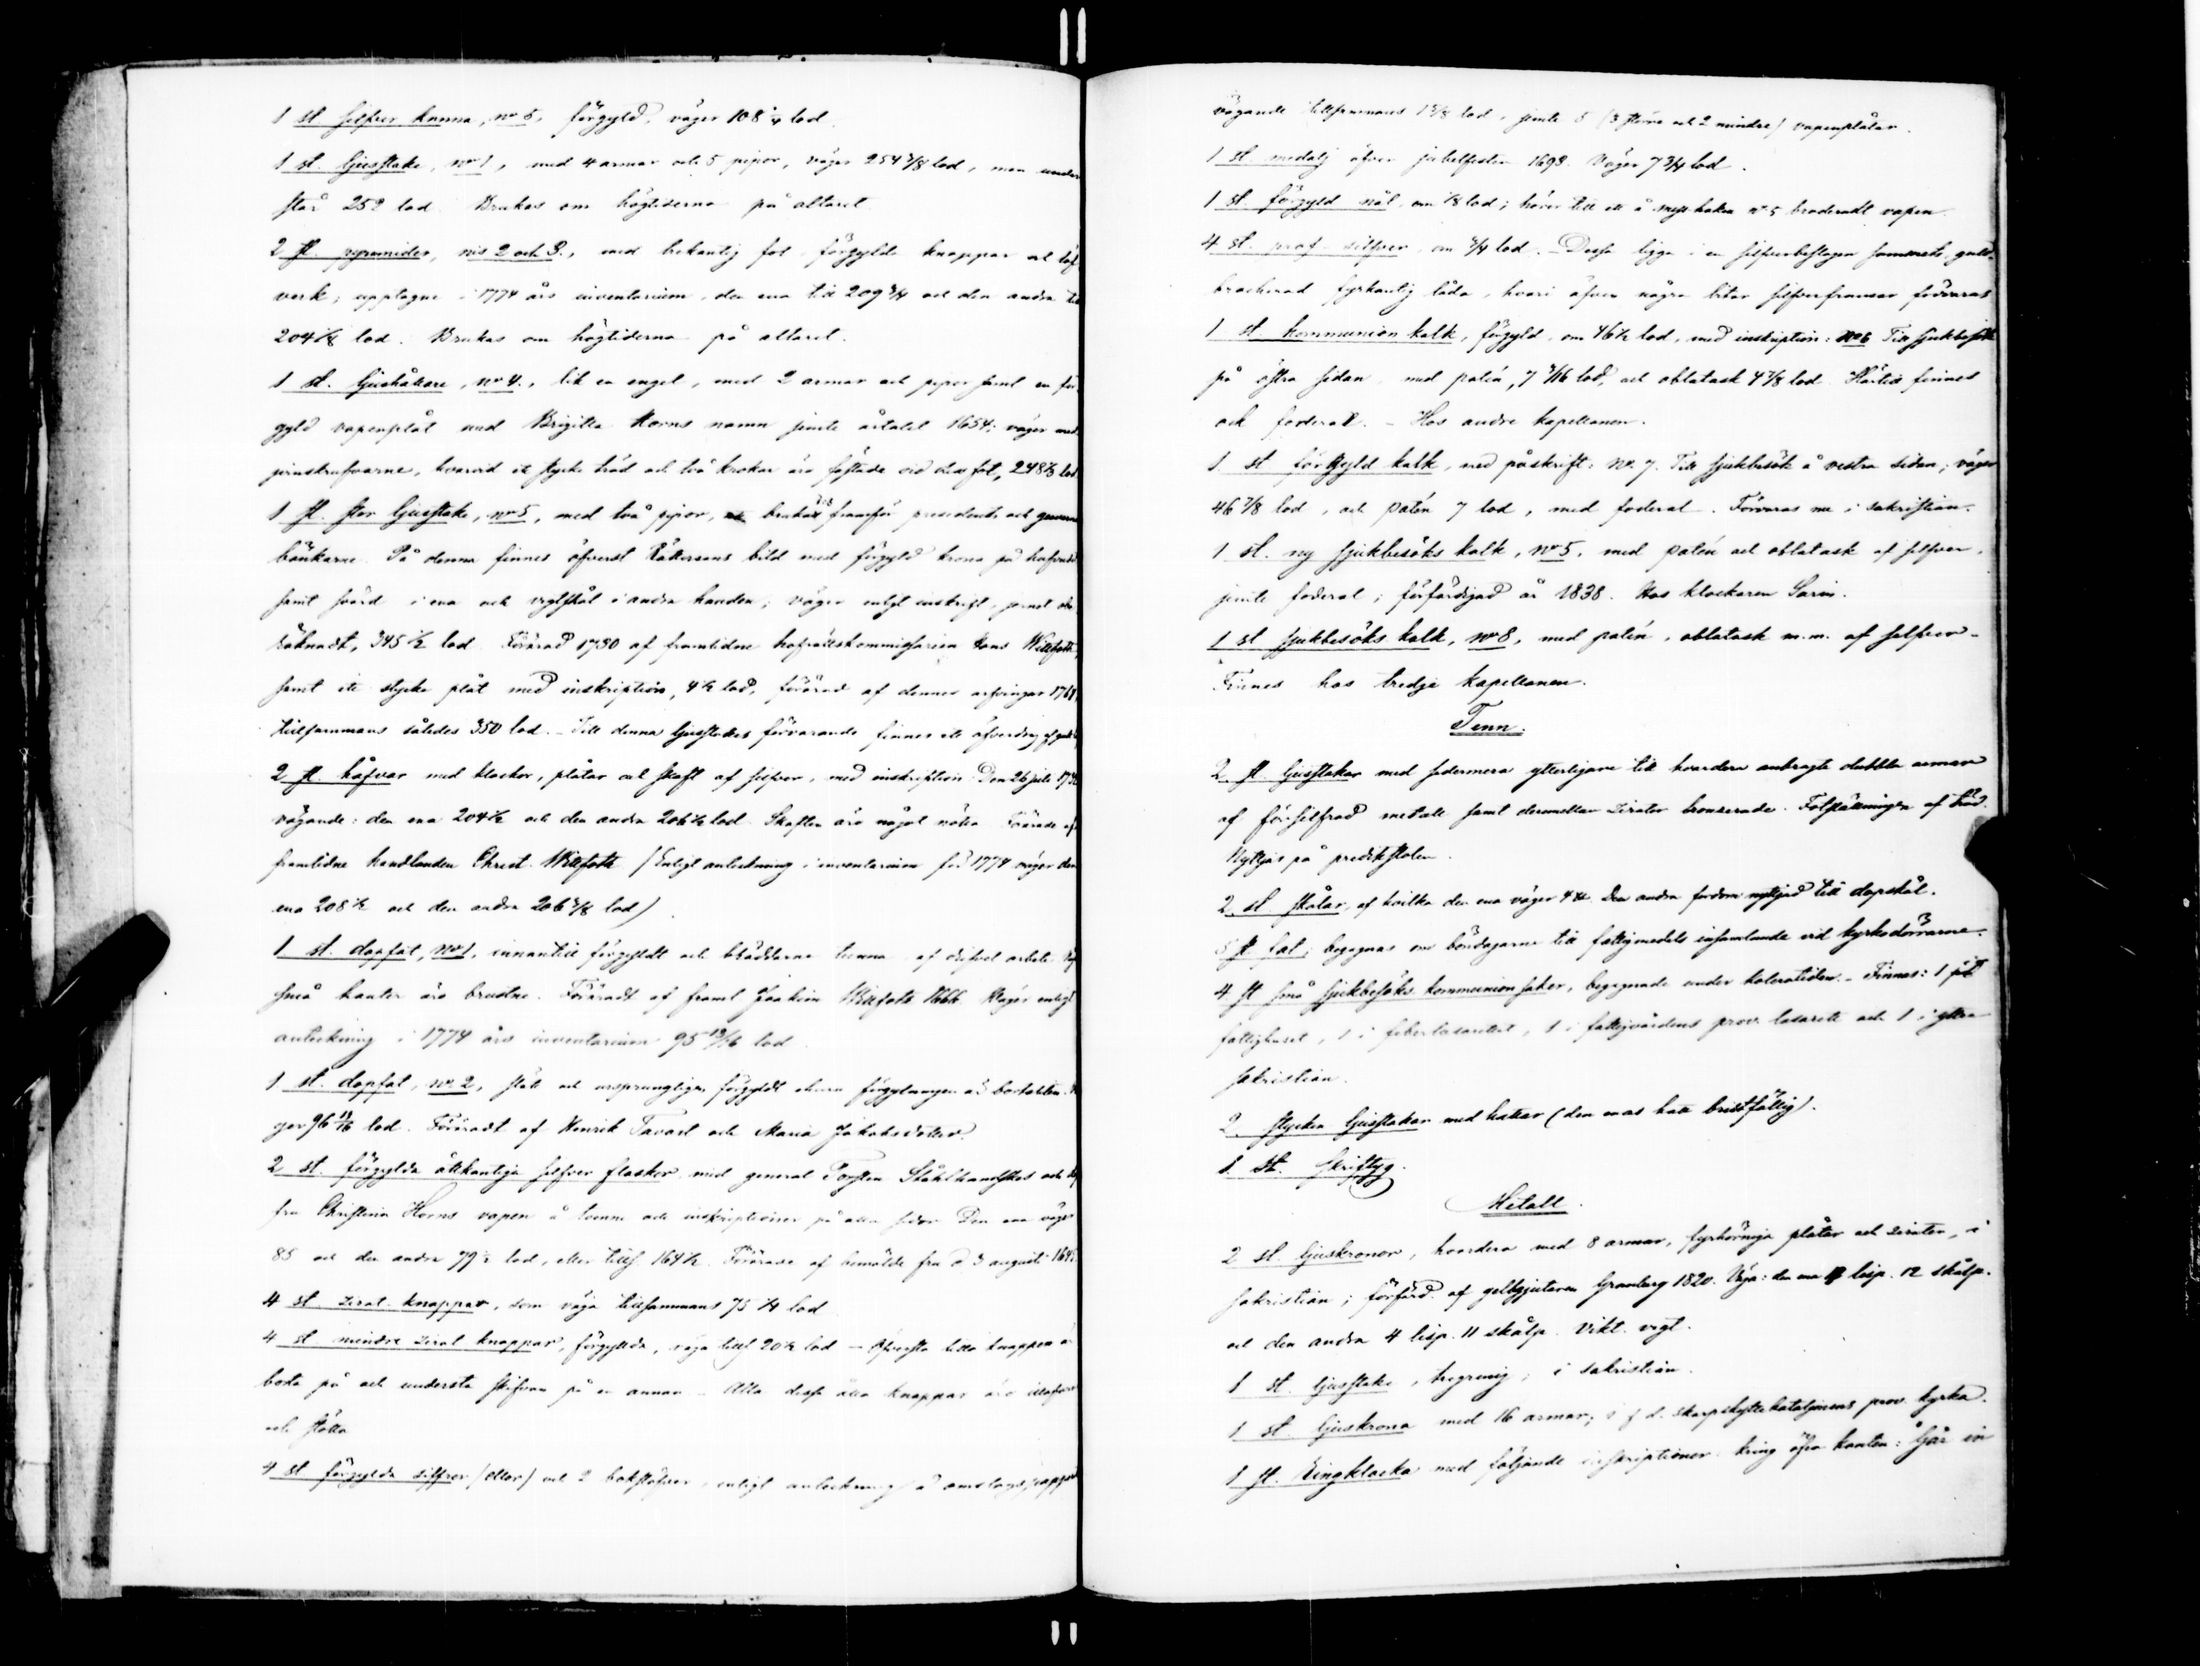 1 st silfver kanna, no 5, förgyld, väger 108 1/4 lod.
1 st. ljusstake, no 1, med 4 armar och 5 pipor, väger 254 3/8 lod, men under
står 252 lod. Brukas om högtiderna på altaret
2 st. pyramider, nis 2 och 3., med trekantig fot förgylda knappar och löf
verk; upptagne i 1774 års inventarium, den ena till 209 3/4 och den andra till
204 1/8 lod. Brukas om högtiderna på altaret.
1 st. ljushållare, no 4., lik en engel, med 2 armar och pipor samt en för
gyld vapenplåt med Brigitta Horns namn jemte årtalet 1654; väger med
jernskrufvarne, hvarvid ett stycke träd och två krokar äro fästade vid dess fot, 248 1/2 lod.
1 st. stor ljusstake, no 5, med två pipor, brukas framför presidents och
bänkarne. På denna finnes öfverst Rättvisans bild med förgyld krona på hufvudet
samt svärd i ena och vigtskål i andra handen; väger enligt inskrift, jernet
räknadt, 345 1/2 lod. Förärad 1750 af framlidne hofrättskommissarien Hans Wittfooth,
samt ett stycke plåt med inskription, 4 1/2 lod, förärad af dennes arfvingar 1761,
tillsammans således 350 lod. - Till denna ljusstakes förvarande finnes ett öfverdrag af
2 st. håfvar med klockor, plåtar och skaft af silfver, med inskription: Den 26 julii
vägande: den ena 204 1/2 och den andra 206 1/2 lod. Skaften äro något nötta. Förärade af
framlidne handlanden Christ. Wittfooth. (Enligt anteckning i inventarium för 1774 väger den
ena 208 1/2 och den andra 206 5/8 lod).
1 st. dopfat, no 1, innantill förgyldt och bräddarne tunna af drifvet arbete.
små kanter äro brustne. Föräradt af framl Joakim Wittfooth 1666. Väger enligt
anteckning i 1774 års inventarium 95 13/16 lod
1 st. dopfat, no 2, slätt och ursprungligen förgyldt ehuru förgylningen är bortnött.
ger 96 13/16 lod. Föräradt af Henrik Tavast och Maria Jakobsdotter.
2 st. förgylda åttkantiga silfver flaskor med general Torsten Stålhandskes och
fru Christina Horns vapen å tvenne och inskriptioner på alla sidor. Den ena väger
85 och den andra 79 1/2 lod, eller tills. 164 1/2. Förärade af bemälda fru d. 3 augusti
4 st. zirat knappar, som väga tillsammans 75 1/4 lod
4 st mindre zirat knappar, förgyllda, väga tills 20 1/2 lod - Öfversta lilla knappen är
borta på och understa skifvan på en annan. - Alla dessa åtta knappar äro
och slätta
4 st förgylda silfver (ettor) och 2 bokstäfver, enligt anteckning å omslagspappret
vägande tillsammans 1 5/8 lod, jemte 5 (3 större och 2 mindre) vapenplåtar.
1 st. medalj öfver jubelfesten 1693. Väger 7 3/4 lod.
1 st. förgyld nål om 1/8 lod; hörer till ett å messhaken no 5 broderadt vapen.
4 st. prof silfver om 3/4 lod. - Dessa ligga i en silfverbeslagen sammets, guld-
brocherad fyrkantig låda, hvari äfven några bitar silfverfransar förvaras
1 st. kommunion kalk, förgyld, om 46 1/2 lod, med inskription: no 6 Till sjukbesök
på östra sidan, med patén, 7 7/16 lod, och oblatask 4 7/8 lod. Härtill finnes
ock foderal. - Hos andre kapellanen.
1 st förgyld kalk, med påskrift: No. 7. Till sjukbesök å vestra sidan; väger
46 7/8 lod, och patén 7 lod, med foderal. Förvaras nu i sakristian.
1 st. ny sjukbesöks kalk, no 5, med patén och oblatask af silfver,
jemte foderal; förfärdigad år 1838. Hos klockaren Sarin.
1 st sjukbesöks kalk, no 8, med patén, oblatask m.m. af silfver -
Finnes hos tredje kapellanen.
Tenn.
2 st. ljusstakar med sedermera ytterligare till hvardera anbragte dubbla armar
af försilfrad metall samt derunder zirater bronzerade. Fotställningen af träd.
Nyttjas på predikstolen.
2 st skålar, af hvilka den ena väger 4 . Den andra fordom nyttjad till dopskål.
5 st fat; begagnas om böndagarne till fattigmedels insamlande vid kyrkodörrarne.
4 st små sjukbesöks kommunion saker, begagnade under koleratiden. - Finnas: 1 på
fattighuset, 1 i feberlasarettet, 1 i fattigvårdens prov. lasarett och 1 i yttre
sakristian.
2 stycken ljusstakar med hattar (den enas hatt bristfällig).
1 st. skriftyg.
Metall.
2 st. ljuskronor, hvardera med 8 armar, fyrhörniga plåtar och zirater, i
sakristian; förfärd. af gelbgjutaren Granberg 1820. Väga: den ena 4 lisp. 12 skålp.
och den andra 4 lisp. 11 skålp. vikt. vigt.
1 st. ljusstake, tregrenig; i sakristian.
1 st. ljuskrona med 16 armar; i f d. skarpskyttebataljonens prov. kyrka.
1 st. Ringklocka med följande inskriptioner kring öfra kanten: Går in